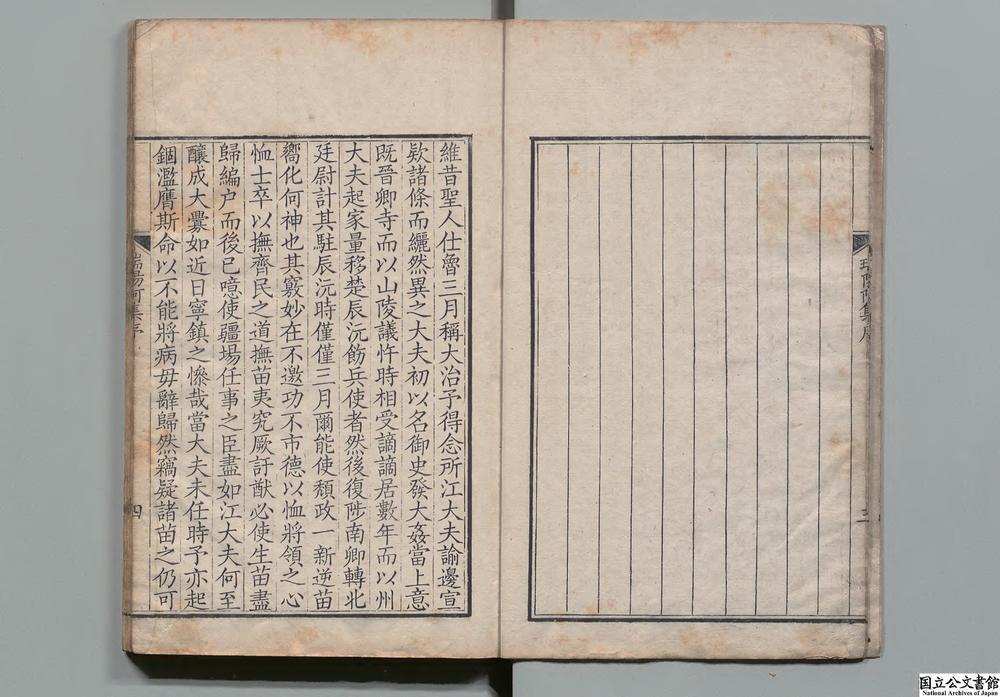 維昔聖人仕魯三月稱大治予得念所江大夫諭邊宣
欵諸條而纚然異之大夫初以名御史發大姦當上意
既晉卿寺而以山陵議忤時相受謫謫居數年而以州
大夫起家量移楚辰沅飭兵使者然後復陟南卿轉北
廷尉計其駐辰沅時僅僅三月爾能使頹政一新逆苗
嚮化何神也其竅妙在不邀功不市德以恤將領之心
恤士卒以撫齊民之道撫苗夷究厥訏猷必使生苗盡
歸編户而後已噫使疆場任事之臣盡如江大夫何至
釀成大釁如近日寧鎮之慘哉當大夫未任時予亦起
錮濫膺斯命以不能將病毋辭歸然竊疑諸苗之仍可
集序
四
集序
三
国立公文書館
National Archives of Japan